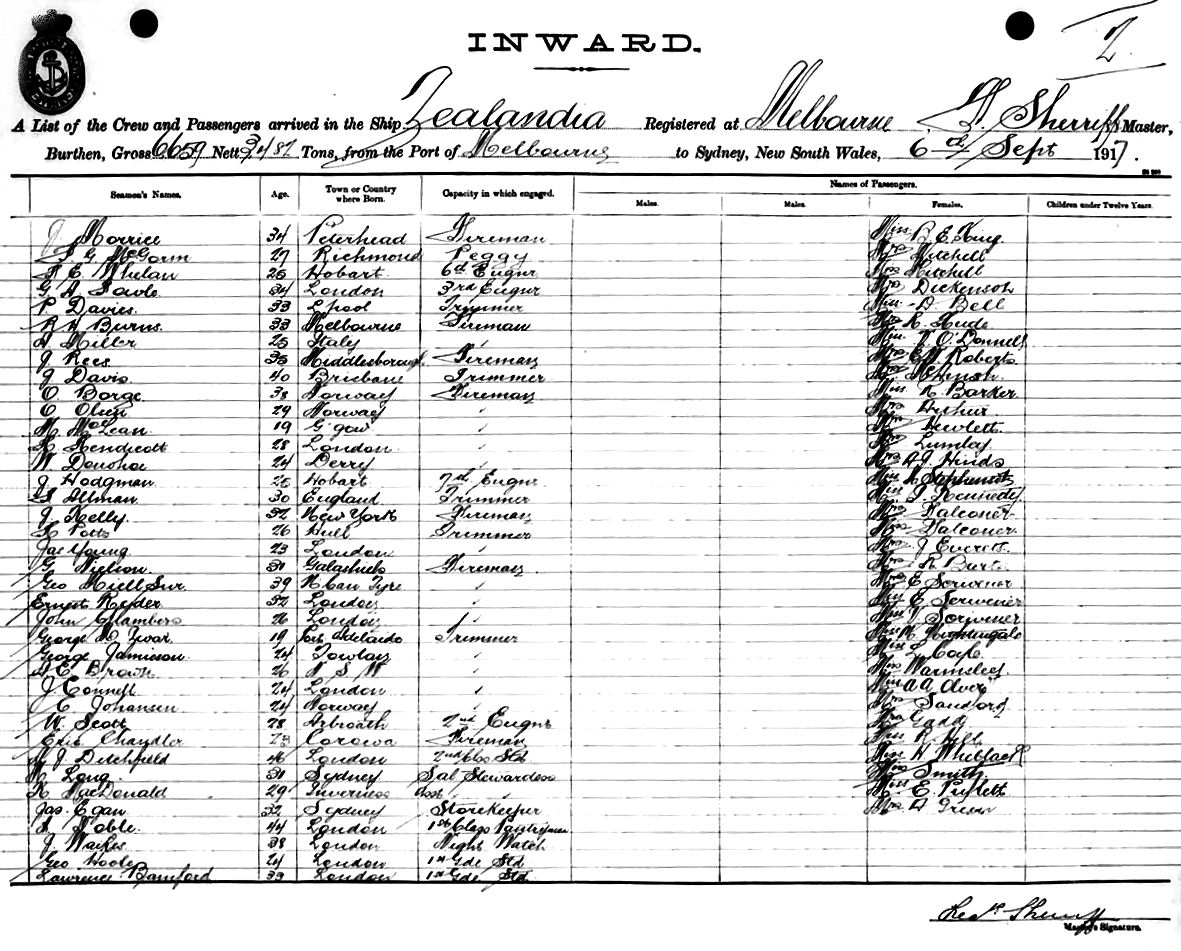 2
INWARD.
A List of the Crew and Passengers arrived in the Ship Zealandia Registered at Melbourne Sherriff Master,
Burthen, Gross 6659 Nett Tons, from the Port of Melbourne to Sydney, New South Wales, 6th Sept 1917.
Seamen's Names. Age. Town or Country where Born. Capacity in which engaged. Names of Passengers.
Males. Males. Females. Children under Twelve Years.
J Morrice 34 Peterhead Fireman Miss B. E. King
G McGorm 27 Richmond Peggy Mrs Mitchell
E Whelan 25 Hobart 6th Engnr Mitchell
G A 34 London 3rd Engnr Dickenson
P Davies 33 L'pool Trimmer Miss Bell
R H Burns 33 Melbourne Fireman Mrs R.
Miller 25 Italy Miss O'Donnell
J Rees 35 Middlesborough Fireman Mrs Roberts
J Davis 40 Brisbane Trimmer
O Borge 38 Norway Fireman Miss R. Barker
O Olsen 29 Norway " Mrs Arthur
McLean 19 G'gow " Mrs Hewlett
Hendicott 28 London " Lumley
W Donohoe 24 Derry " Mrs A J Hinds
J Hodgman 25 Hobart 7th Engnr Miss Stephenson
Allman 30 England Trimmer Miss Kennedy
J Kelly 32 New York Fireman Falconer
Potts 26 Hull Trimmer Falconer
Jas Young 23 London " Mrs J Everett
G Nielson 31 Galashiels Fireman
Geo 39 " Mrs E Scrivener
Ernest Ryder 32 London " Miss E. Scrivener
John Chambers 26 London " Miss V Scrivener
George 19 Port Adelaide Trimmer Miss Nightingale
George Jamieson 24 " Miss Cope
E Brown 26 N S W " Miss Warmsley
J Connell 24 London " Miss A A
E Johansen 24 Norway " Sandford
W. Scott 28 Arbroath 2nd Engnr Gadd
Eric Chandler 23 Corowa Fireman Miss R Hill
J Ditchfield 46 London 2nd Clss Std Miss H
M Long 31 Sydney Sal Stewardess Smith
K MacDonald 29 Inverness Asst " Miss E.
Jas. Egan 32 Sydney Storekeeper Mrs A Green
Noble 44 London 1st Class Pantryman
J 38 London Night Watch
Geo Hoole 24 London 1st Gde Std
Lawrence Bamford 33 London 1st Gde Std
Sherriff
Master's Signature.